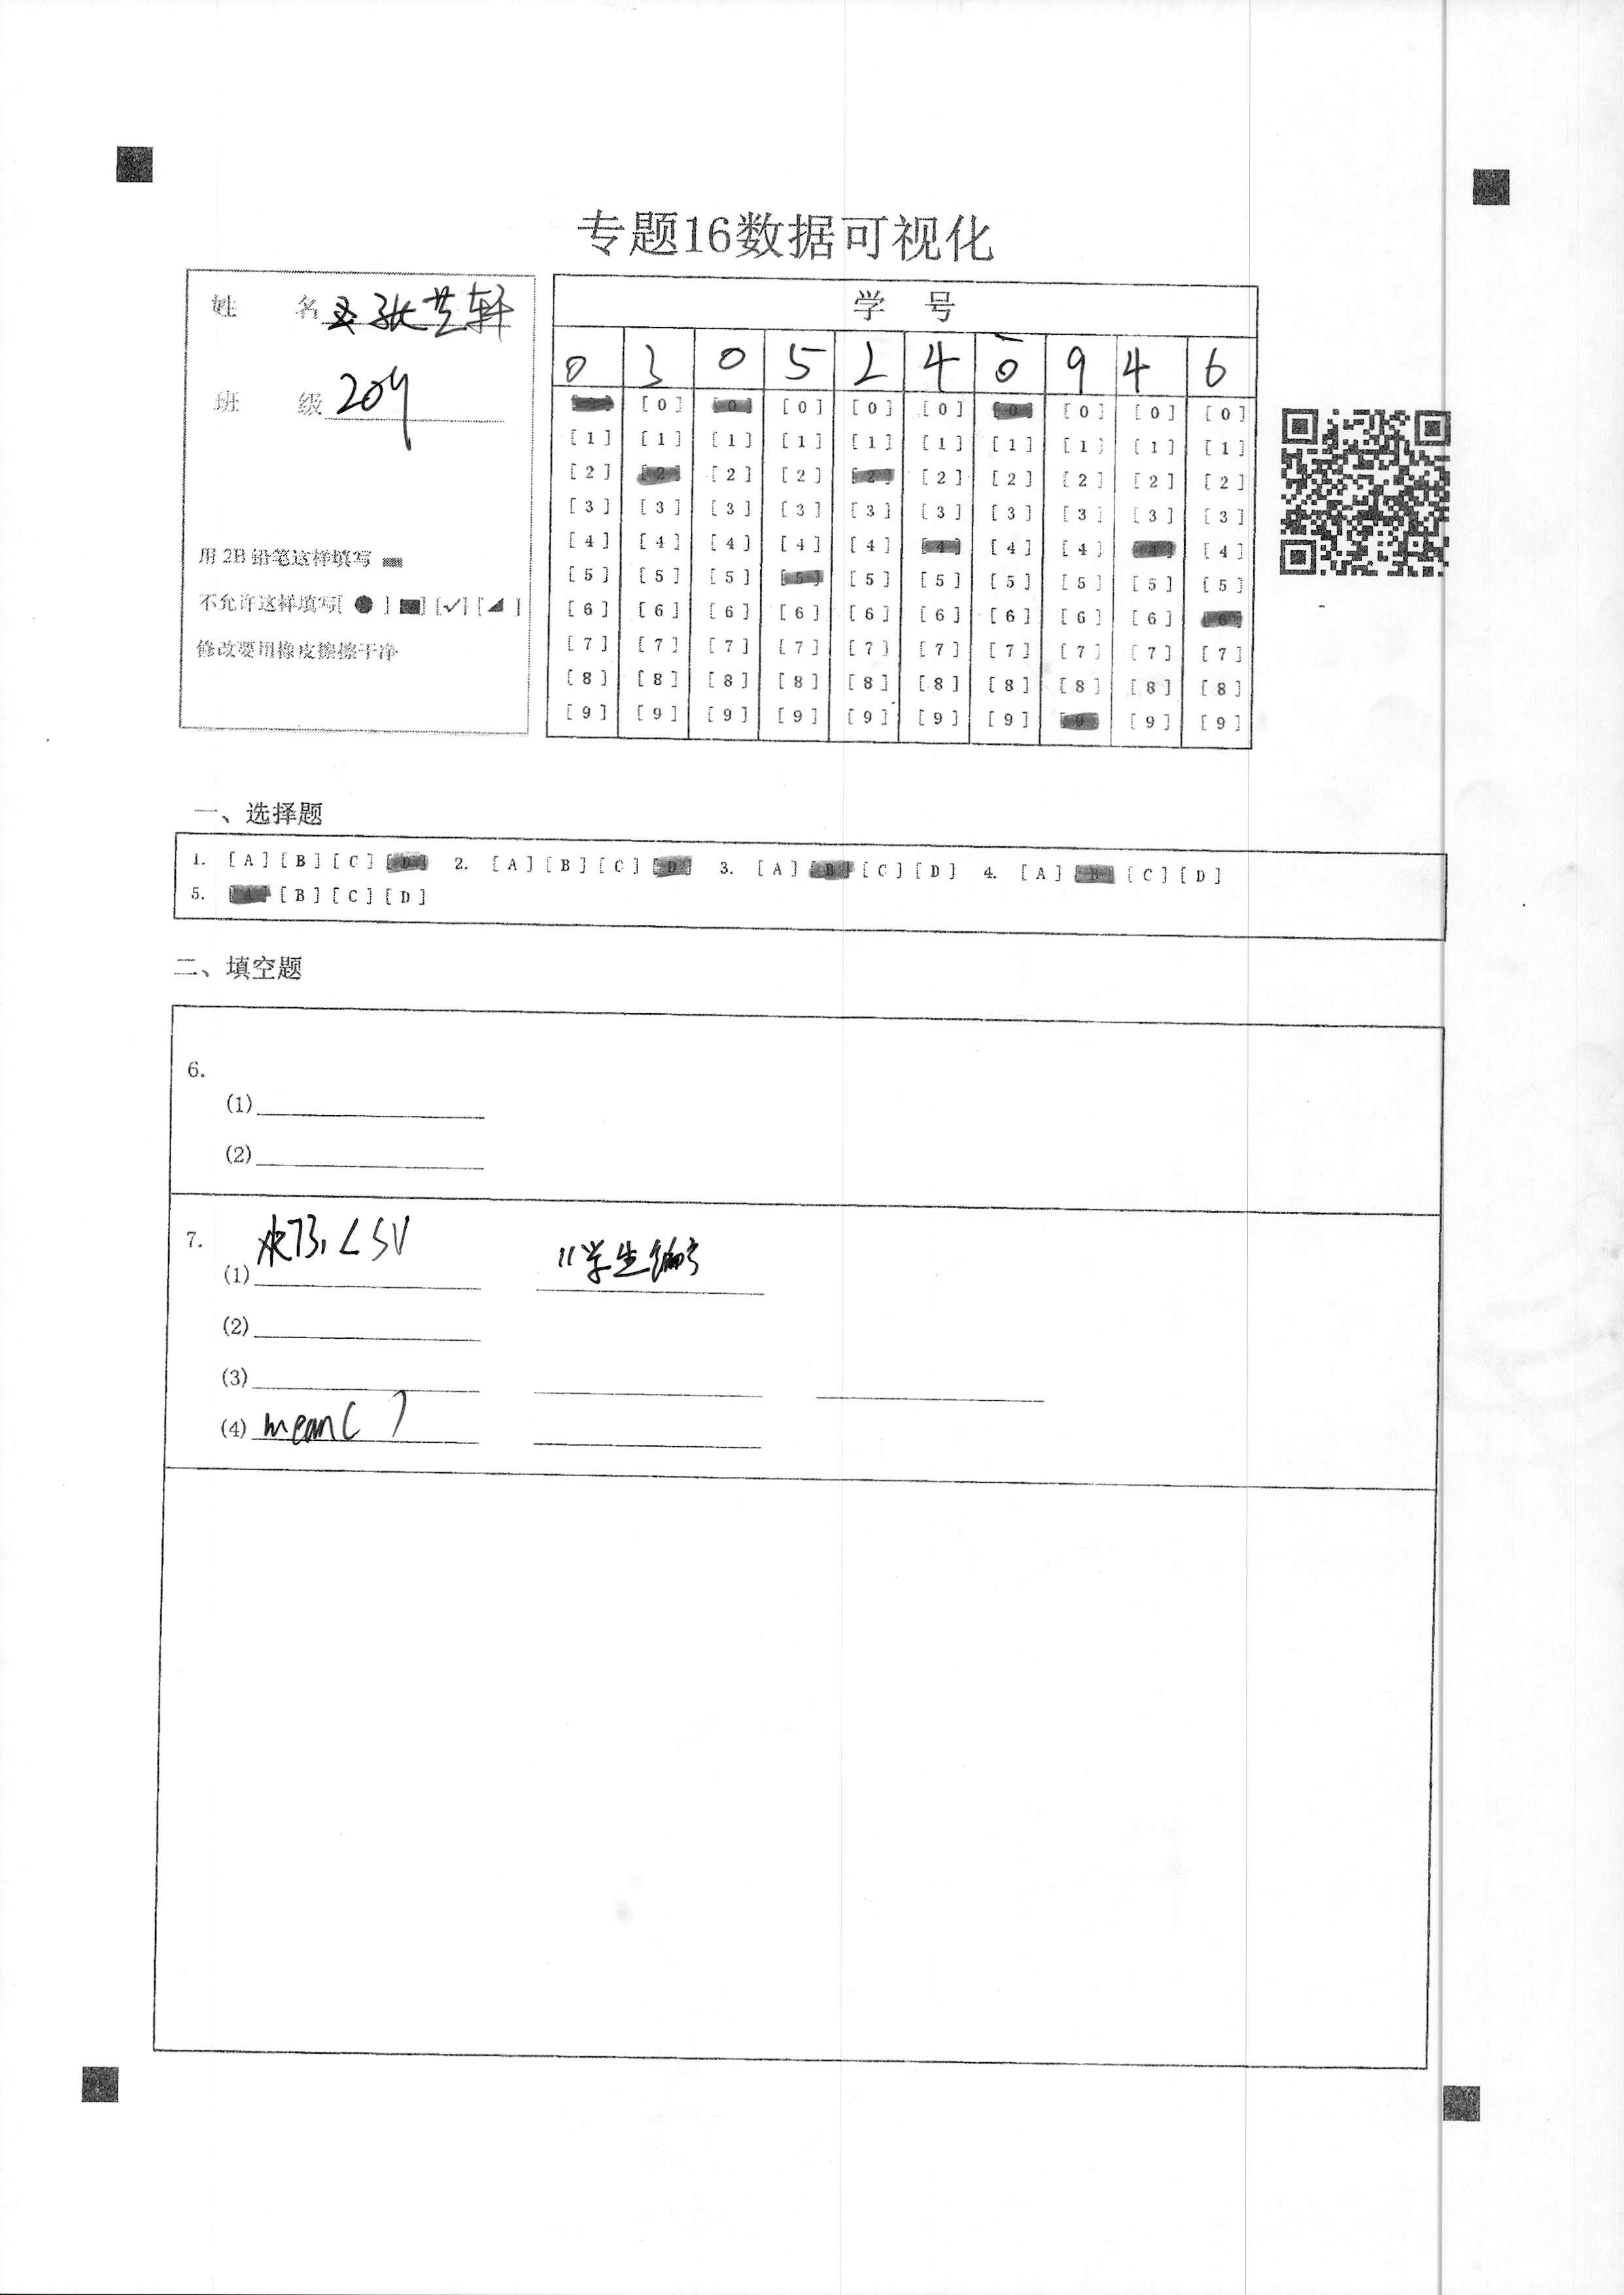 专题16数据可视化
姓 名 张芝轩
班 级 204
用2B铅笔这样填写
不允许这样填写[ ● ] [■] [✓] [◢ ]
修改要用橡皮擦擦干净
学 号
0 3 0 5 2 4 0 9 4 6
[0] [0] [0] [0] [0] [0] [0] [0] [0]
[1] [1] [1] [1] [1] [1] [1] [1] [1] [1]
[2] [2] [2] [2] [2] [2] [2] [2] [2] [2]
[3] [3] [3] [3] [3] [3] [3] [3] [3] [3]
[4] [4] [4] [4] [4] [4] [4] [4] [4] [4]
[5] [5] [5] [5] [5] [5] [5] [5] [5] [5]
[6] [6] [6] [6] [6] [6] [6] [6] [6] [6]
[7] [7] [7] [7] [7] [7] [7] [7] [7] [7]
[8] [8] [8] [8] [8] [8] [8] [8] [8] [8]
[9] [9] [9] [9] [9] [9] [9] [9] [9] [9]
一、选择题
1. [A] [B] [C] [D] 2. [A] [B] [C] [D] 3. [A] [B] [C] [D] 4. [A] [B] [C] [D]
5. [A] [B] [C] [D]
二、填空题
6.
(1)
(2)
7.
(1) CSV "学生编号
(2)
(3)
(4) mean( )